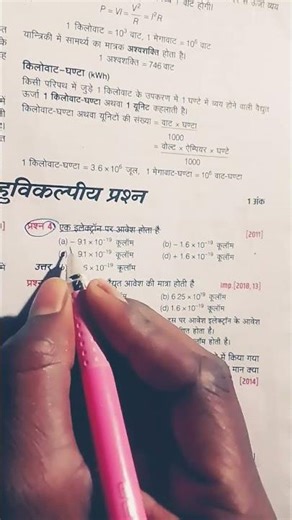 P = VI = V²/R = I²R
1 किलोवाट = 10³ वाट, 1 मेगावाट = 10⁶ वाट
यान्त्रिकी में सामर्थ्य का मात्रक अश्वशक्ति होता है।
1 अश्वशक्ति = 746 वाट
किलोवाट-घण्टा (kWh)
किसी परिपथ में जुड़े 1 किलोवाट के उपकरण में 1 घण्टे में व्यय होने वाली वैद्युत
ऊर्जा 1 किलोवाट-घण्टा अथवा 1 यूनिट कहलाती है।
किलोवाट-घण्टा अथवा यूनिटों की संख्या = वाट × घण्टा / 1000
= वोल्ट × ऐम्पियर × घण्टे / 1000
1 किलोवाट-घण्टा = 3.6 × 10⁶ जूल, 1 मेगावाट-घण्टा = 10⁶ वाट-घण्टा
हुविकल्पीय प्रश्न
1 अंक
प्रश्न 4. एक इलेक्ट्रॉन पर आवेश होता है [2011]
(a) – 9.1 × 10⁻¹⁹ कूलॉम (b) – 1.6 × 10⁻¹⁹ कूलॉम
9.1 × 10⁻¹⁹ कूलॉम (d) + 1.6 × 10⁻¹⁹ कूलॉम
उत्तर
कूलॉम
आवेश की मात्रा होती है imp [2018, 13]
(b) 6.25 × 10⁻¹⁹ कूलॉम
(d) 1.6 × 10⁻¹⁹ कूलॉम
पर आवेश इलेक्ट्रॉन के आवेश
होता है।
होता है।
में किया गया
मान क्या
[2014]